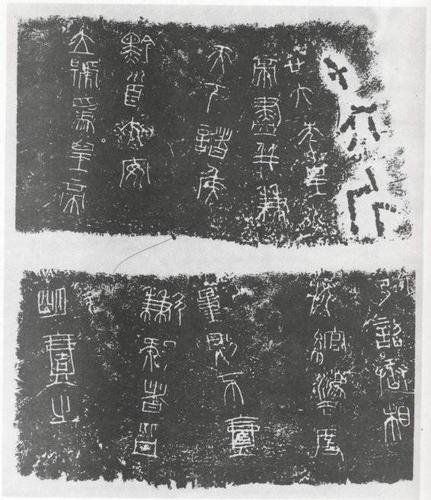 廿六年皇
帝盡并兼
天下諸侯
黔首大安
立號為皇帝
乃詔丞相
狀綰灋度
量則不壹
歉疑者皆
明壹之